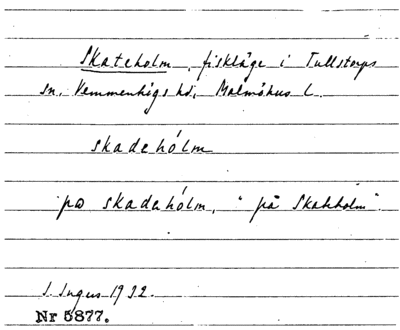 Skateholm, fiskläge i Tullstorps
sn, Vemmenhögs hd, Malmöhus l.
skadehólm
pɷ skadehólm, "på Skateholm".
S. Ingers 1932.
Nr 5877.